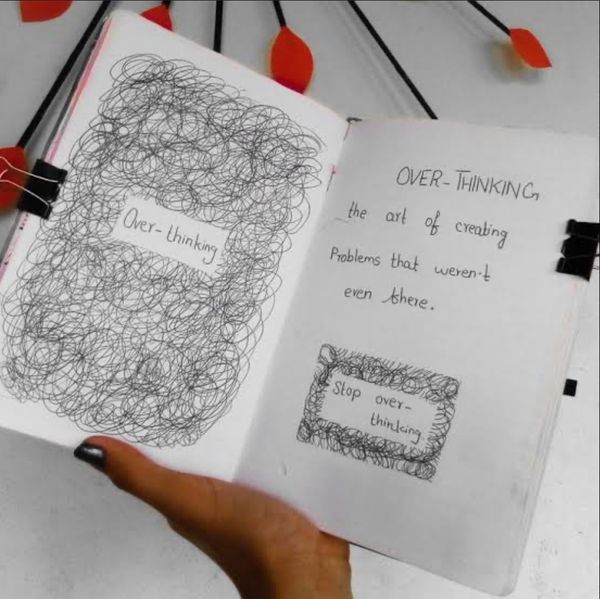 Over-thinking
OVER-THINKING
the art of creating
Problems that weren't
even there.
Stop over-
thinking